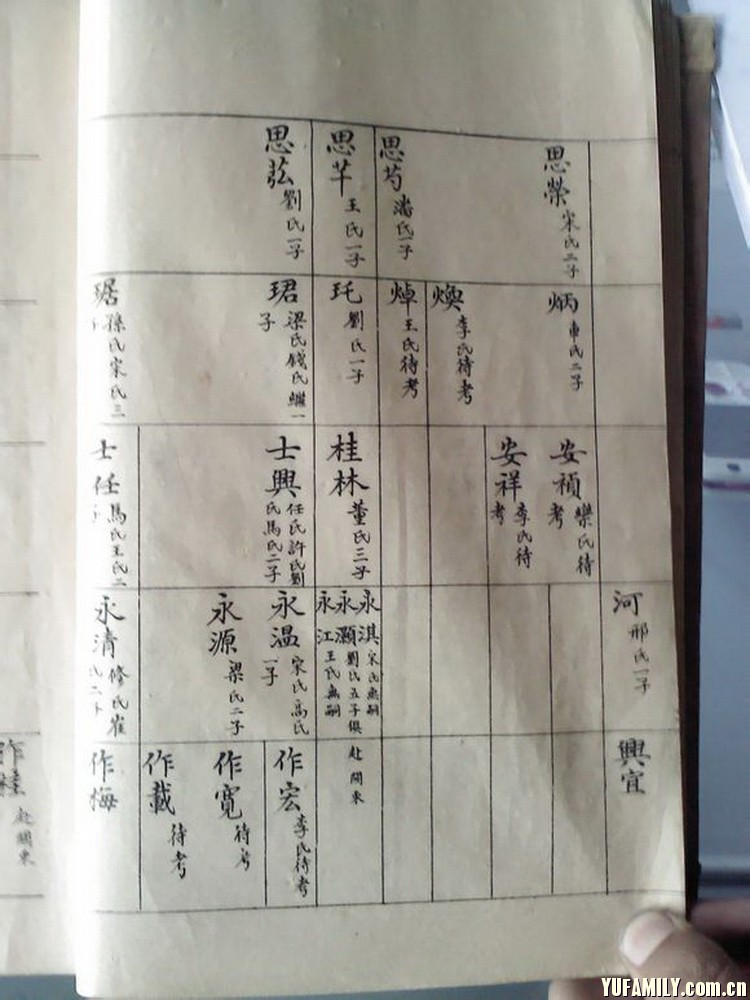 思榮 宋氏二子
思芍 潘氏一子
思芊 王氏一子
思莊 劉氏一子
炳 車氏二子
煥 李氏待考
焯 王氏待考
玘 劉氏一子
珺 梁氏錢氏繼一子
琚 孫氏宋氏三子
安禎 欒氏待考
安祥 李氏待考
桂林 董氏三子
士興 任氏許氏劉氏馬氏二子
士任 馬氏王氏二子
河 邢氏一子
永淇 宋氏無嗣
永灝 劉氏五子俱赴關東
永江 王氏無嗣
永温 宋氏高氏一子
永源 梁氏二子
永清 修氏崔氏二子
興宜
作宏 李氏待考
作寬 待考
作載 待考
作梅
作桂 赴關東
YUFAMILY.com.cn